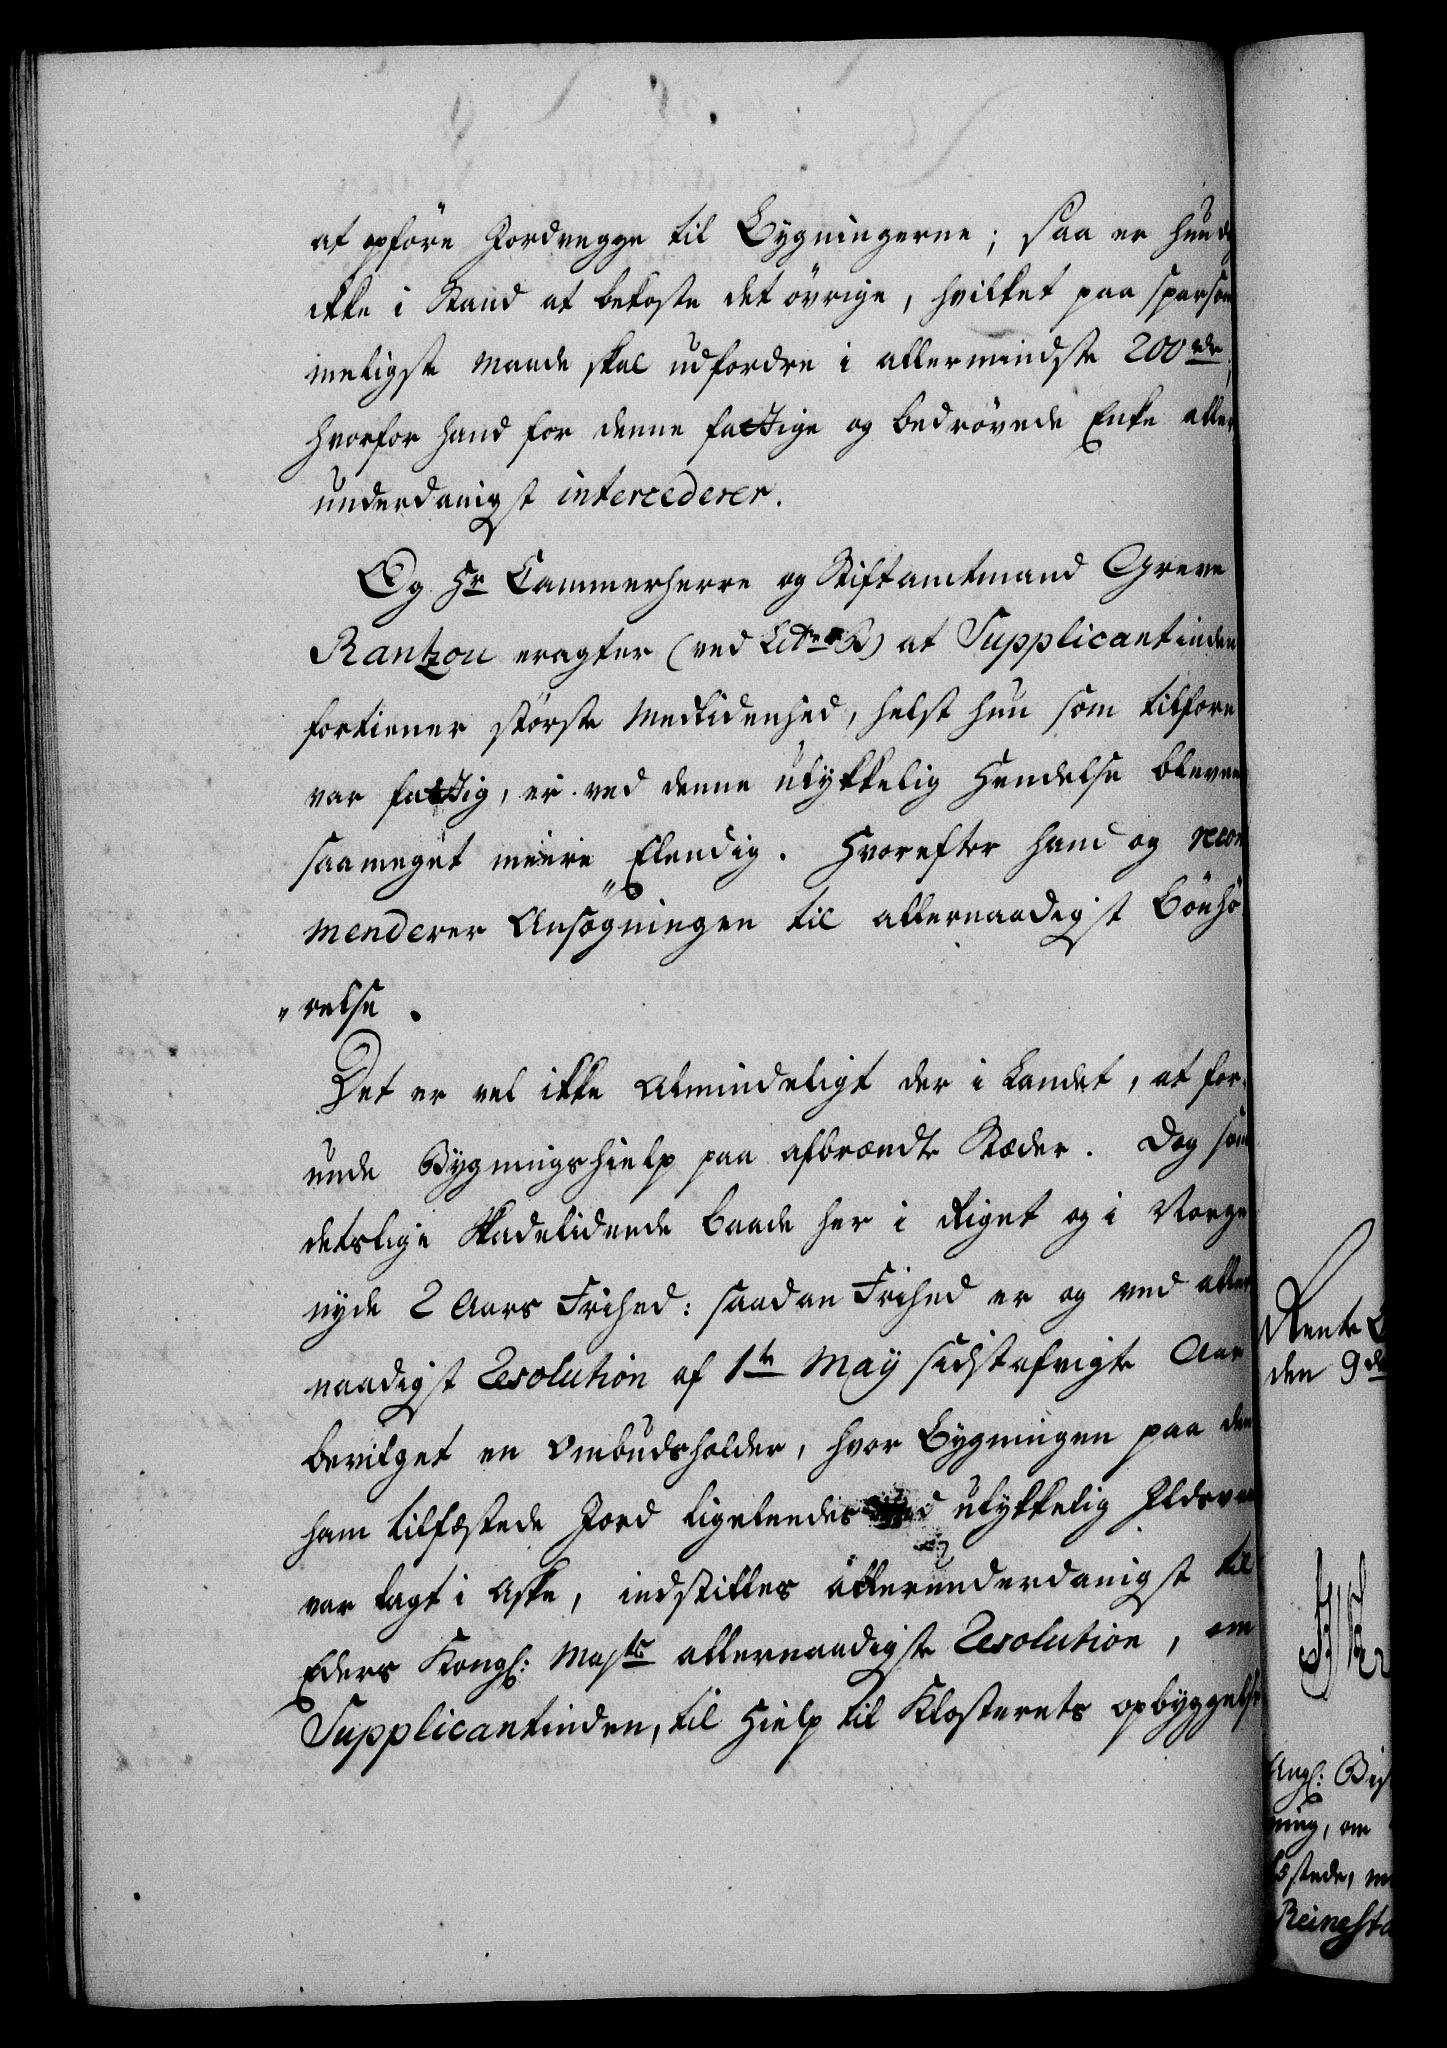 at opföre Jordvegge til Bygningerne; saa er hun dog
ikke i Stand at bekoste det övrige, hvilket paa sparsom
meligste Maade skal udfordre i allermindste 200 rdr,
hvorfor hand for denne fattige og bedrövede Enke aller
underdanigst intercederer.
Og Hr Cammerherre og Stiftamtmand Greve
Rantzou eragter (ved Litr B) at Supplicantinden
fortiener störste Medlidenhed, helst hun som tilforn
var fattig, er ved denne ulykkelig Hendelse bleven
saameget meere Elendig. Hvorefter hand og recom
menderer Ansögningen til allernaadigst Bönhö
"relse.
Det er vel ikke Almindeligt der i Landet, at for-
unde Bygningshielp paa afbrændte Stæder. Dog som
deslige Skadelidende baade her i Riget og i Norge
nyde 2 Aars Frihed: saadan Frihed er og ved aller
naadigst Resolution af 1te May sidstafvigte Aar
bevilget en Ombudsholder, hvor Bygningen paa den
ham tilfæstede Jord ligeleedes ved ulykkelig Ildsvaa
var lagt i Aske, indstilles allerunderdanigst til
Eders Kongl: Majts allernaadigste Resolution, om
Supplicantinden, til Hielp til Klosterets opbyggelse
Rente
den 9de
Angl:
ning, om
stede,